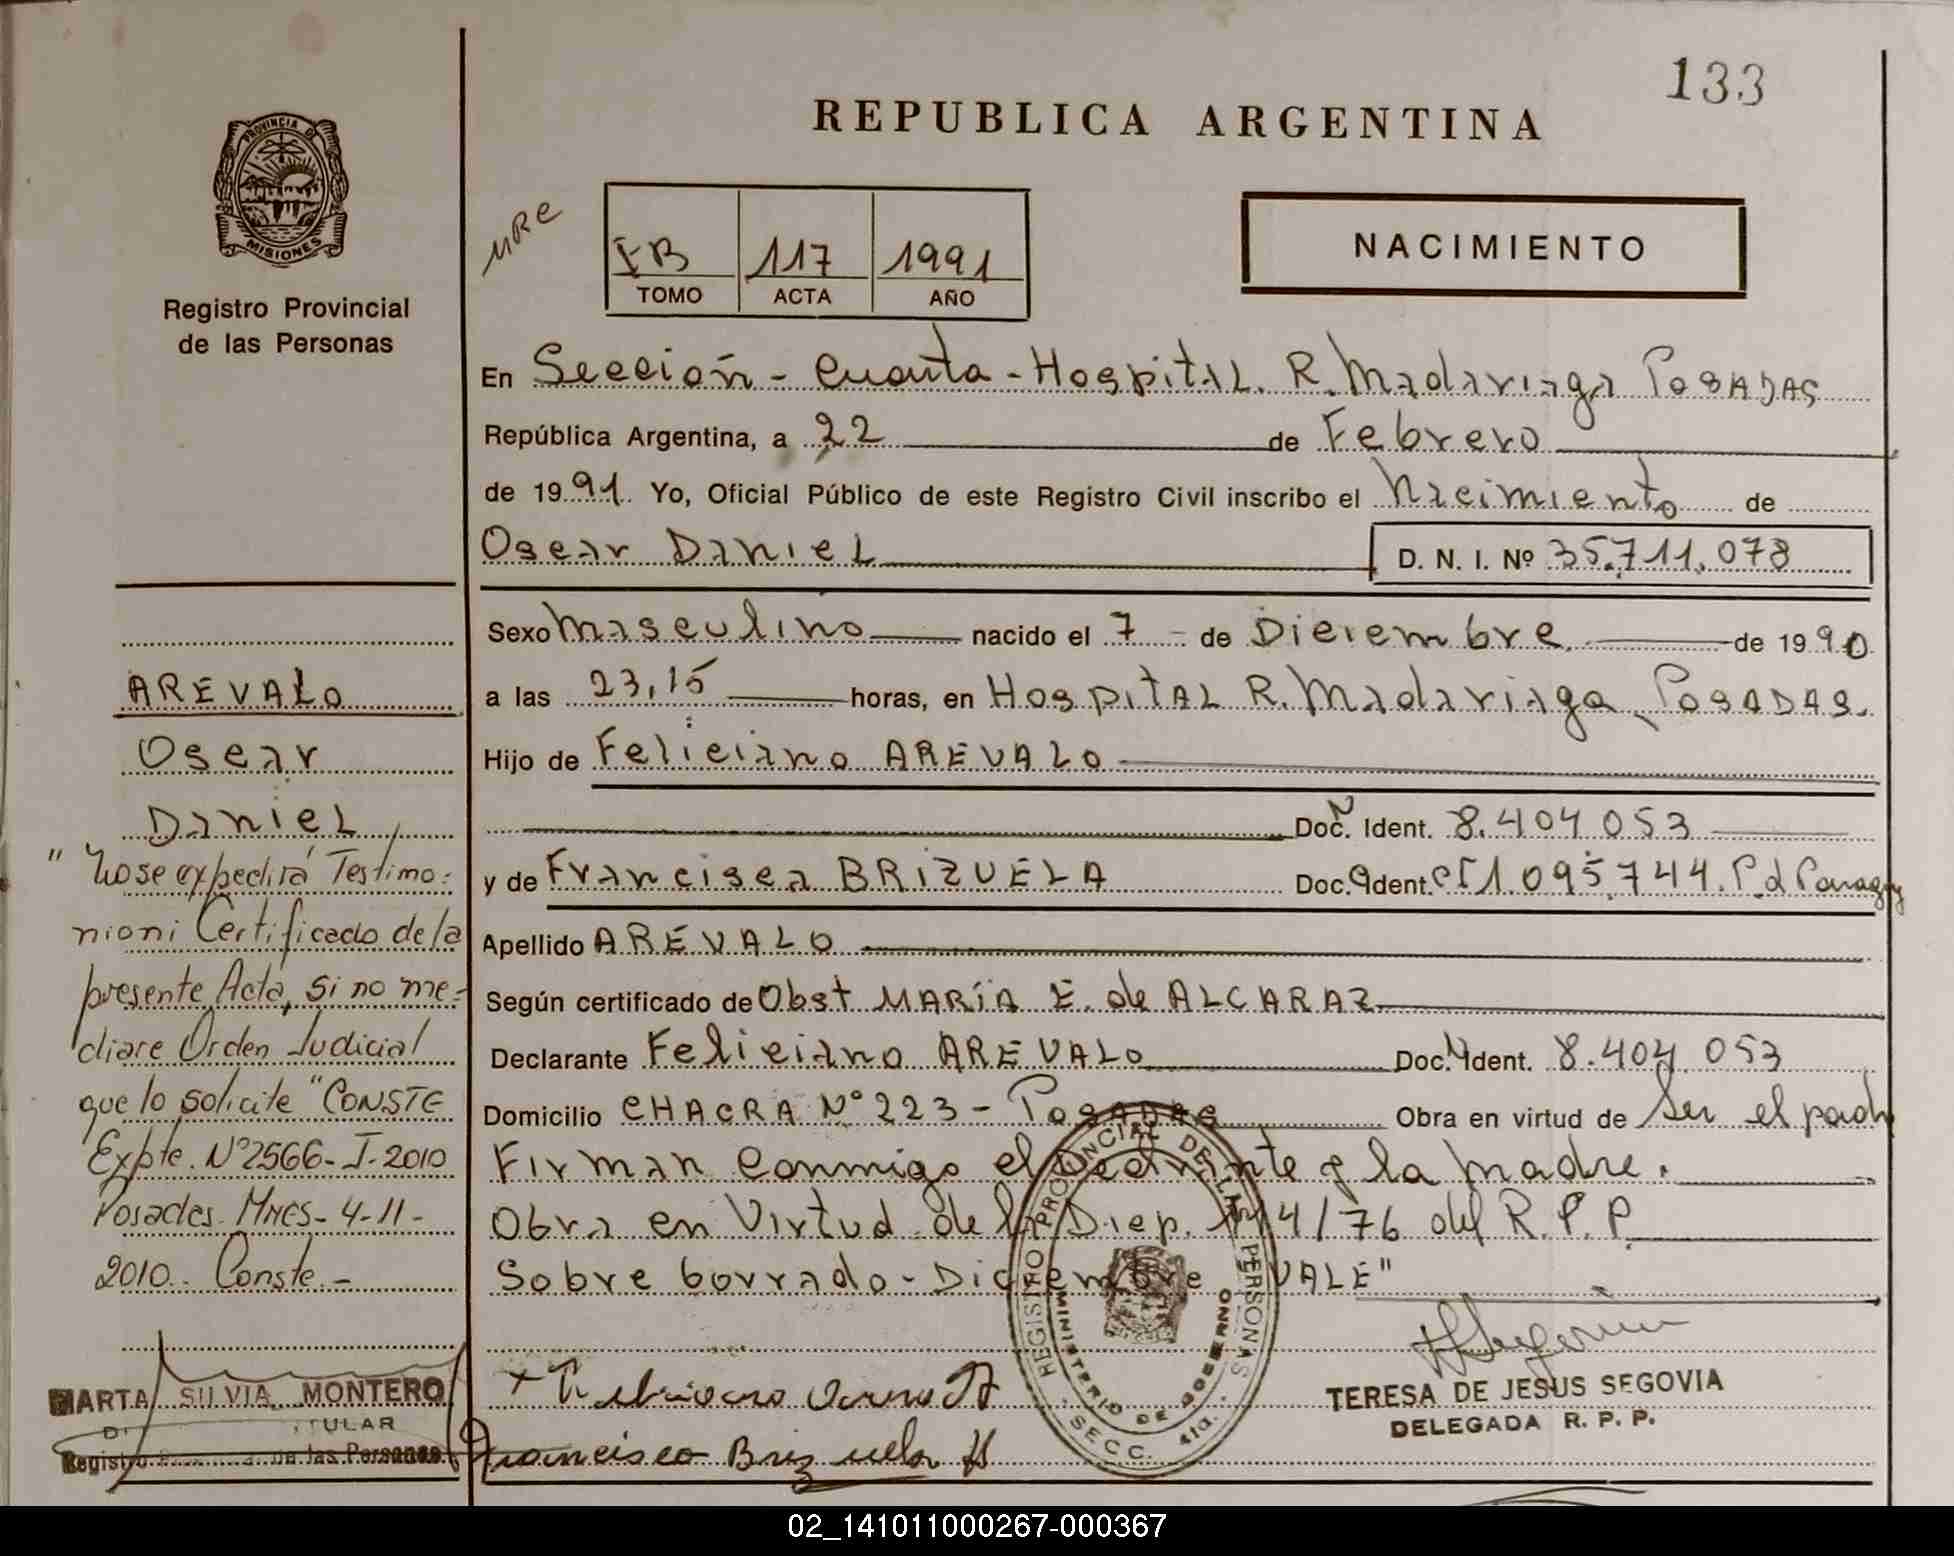 133
REPUBLICA ARGENTINA
PROVINCIA DE
MISIONES
Registro Provincial
de las Personas
MRE
IB 117 1991
TOMO ACTA AÑO
NACIMIENTO
En Sección - Cuarta - Hospital R. Madariaga Posadas
República Argentina, a 22 de Febrero
de 1991. Yo, Oficial Público de este Registro Civil inscribo el Nacimiento de
Oscar Daniel D. N. I. Nº 35.711.078
Sexo Masculino nacido el 7 - de Diciembre de 1990
a las 23,15 horas, en Hospital R. Madariaga, Posadas.
Hijo de Feliciano AREVALO
Doc. N Ident. 8.404.053
y de Francisca BRIZUELA Doc. Ident. 1.095.744. P d Paraguay
Apellido AREVALO
Según certificado de Obst MARÍA E. de ALCARAZ
Declarante Feliciano AREVALO Doc. N Ident. 8.404.053
Domicilio CHACRA Nº 223 - Posadas Obra en virtud de Ser el padre
Firman conmigo el Declarante y la Madre.
Obra en Virtud de la Disp. 114/76 del R. P. P.
Sobre borrado - Diciembre VALE"
AREVALO
Oscar
Daniel
"No se expedirá Testimo=
nio ni Certificado de la
presente Acta, si no me=
diare Orden Judicial
que lo solicite" CONSTE
Expte. Nº 2566-I-2010
Posadas. Mnes - 4-11-
2010.. Conste.-
MARTA SILVIA MONTERO
TULAR
Registro de las Personas
Francisca Brizuela
REGISTRO PROVINCIAL DE LAS PERSONAS
MINISTERIO DE GOBIERNO
- SECC. 4ta. -
TERESA DE JESUS SEGOVIA
DELEGADA R. P. P.
02_141011000267-000367